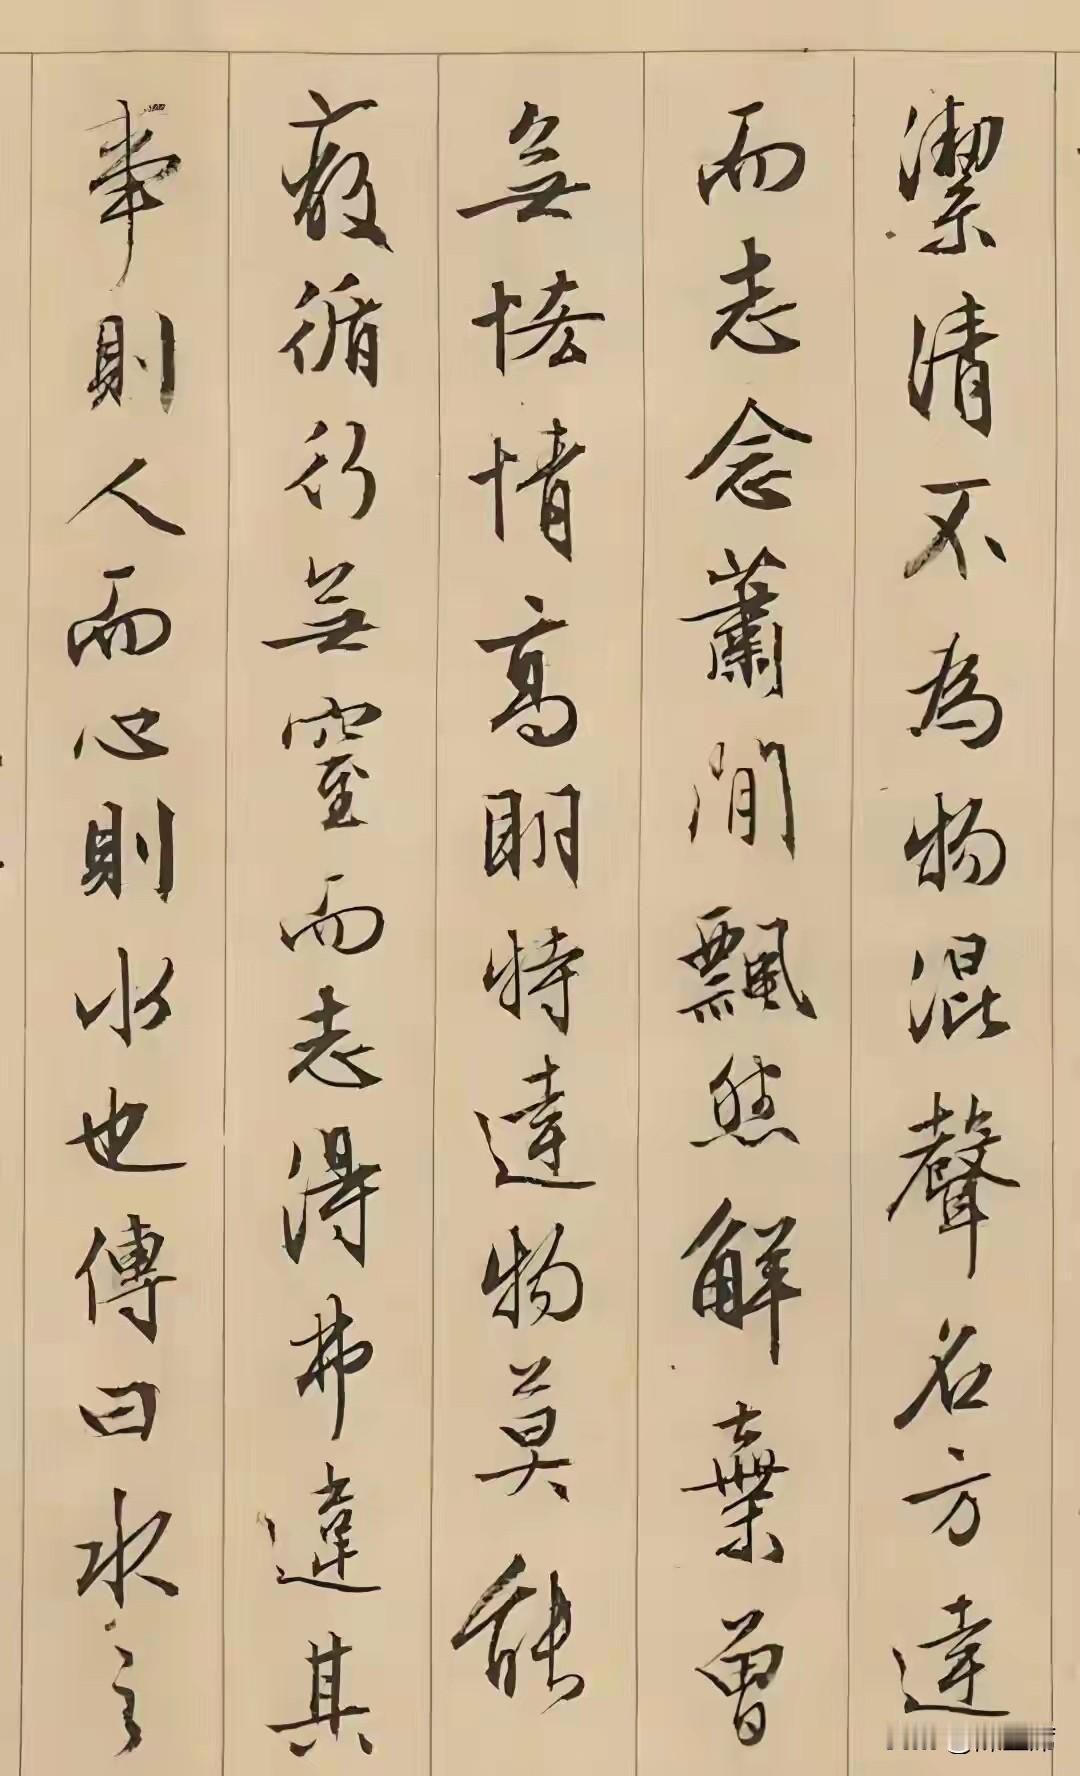 潔清不為物混聲名方達
而志念蕭閒飄然解棄曾
無恡情高明特達物莫能
循行無窒而志得弗違其
則人而心則水也傳曰水之